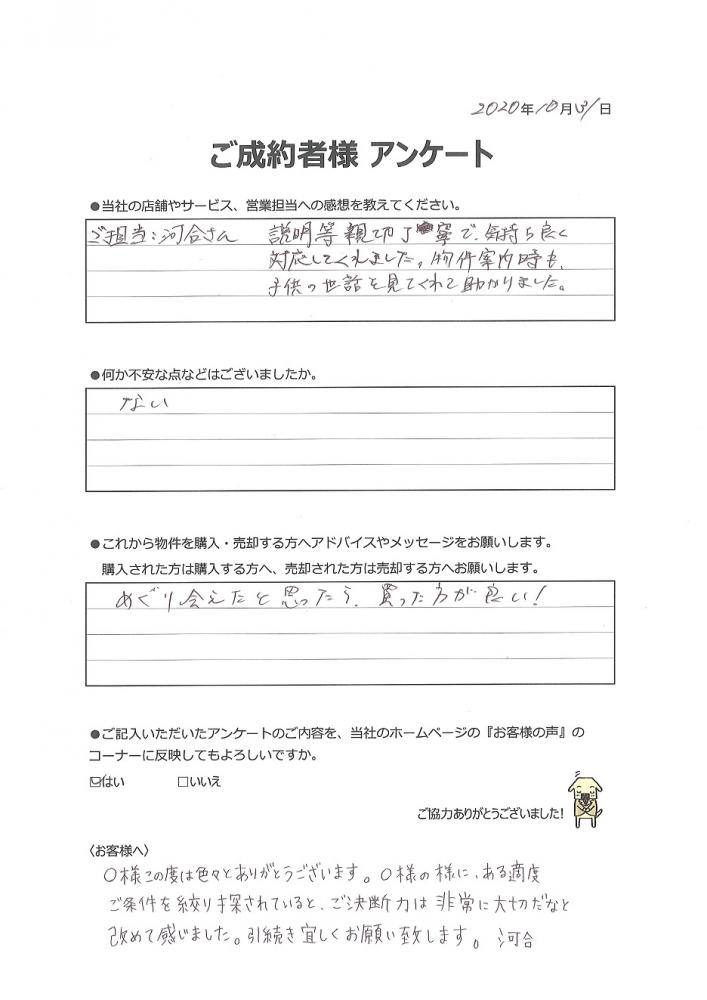 2020年10月31日
ご成約者様 アンケート
●当社の店舗やサービス、営業担当への感想を教えてください。
ご担当:河合さん 説明等親切丁寧で、気持ち良く
対応してくれました。物件案内時も、
子供の世話を見てくれて助かりました。
●何か不安な点などはございましたか。
ない
●これから物件を購入・売却する方へアドバイスやメッセージをお願いします。
購入された方は購入する方へ、売却された方は売却する方へお願いします。
めぐり会えたと思ったら、買った方が良い!
●ご記入いただいたアンケートのご内容を、当社のホームページの『お客様の声』の
コーナーに反映してもよろしいですか。
☑はい □いいえ
ご協力ありがとうございました!
〈お客様へ〉
〇様この度は色々とありがとうございます。〇様の様に、ある適度
ご条件を絞り探されていると、ご決断力は非常に大切だなと
改めて感じました。引続き宜しくお願い致します。河合